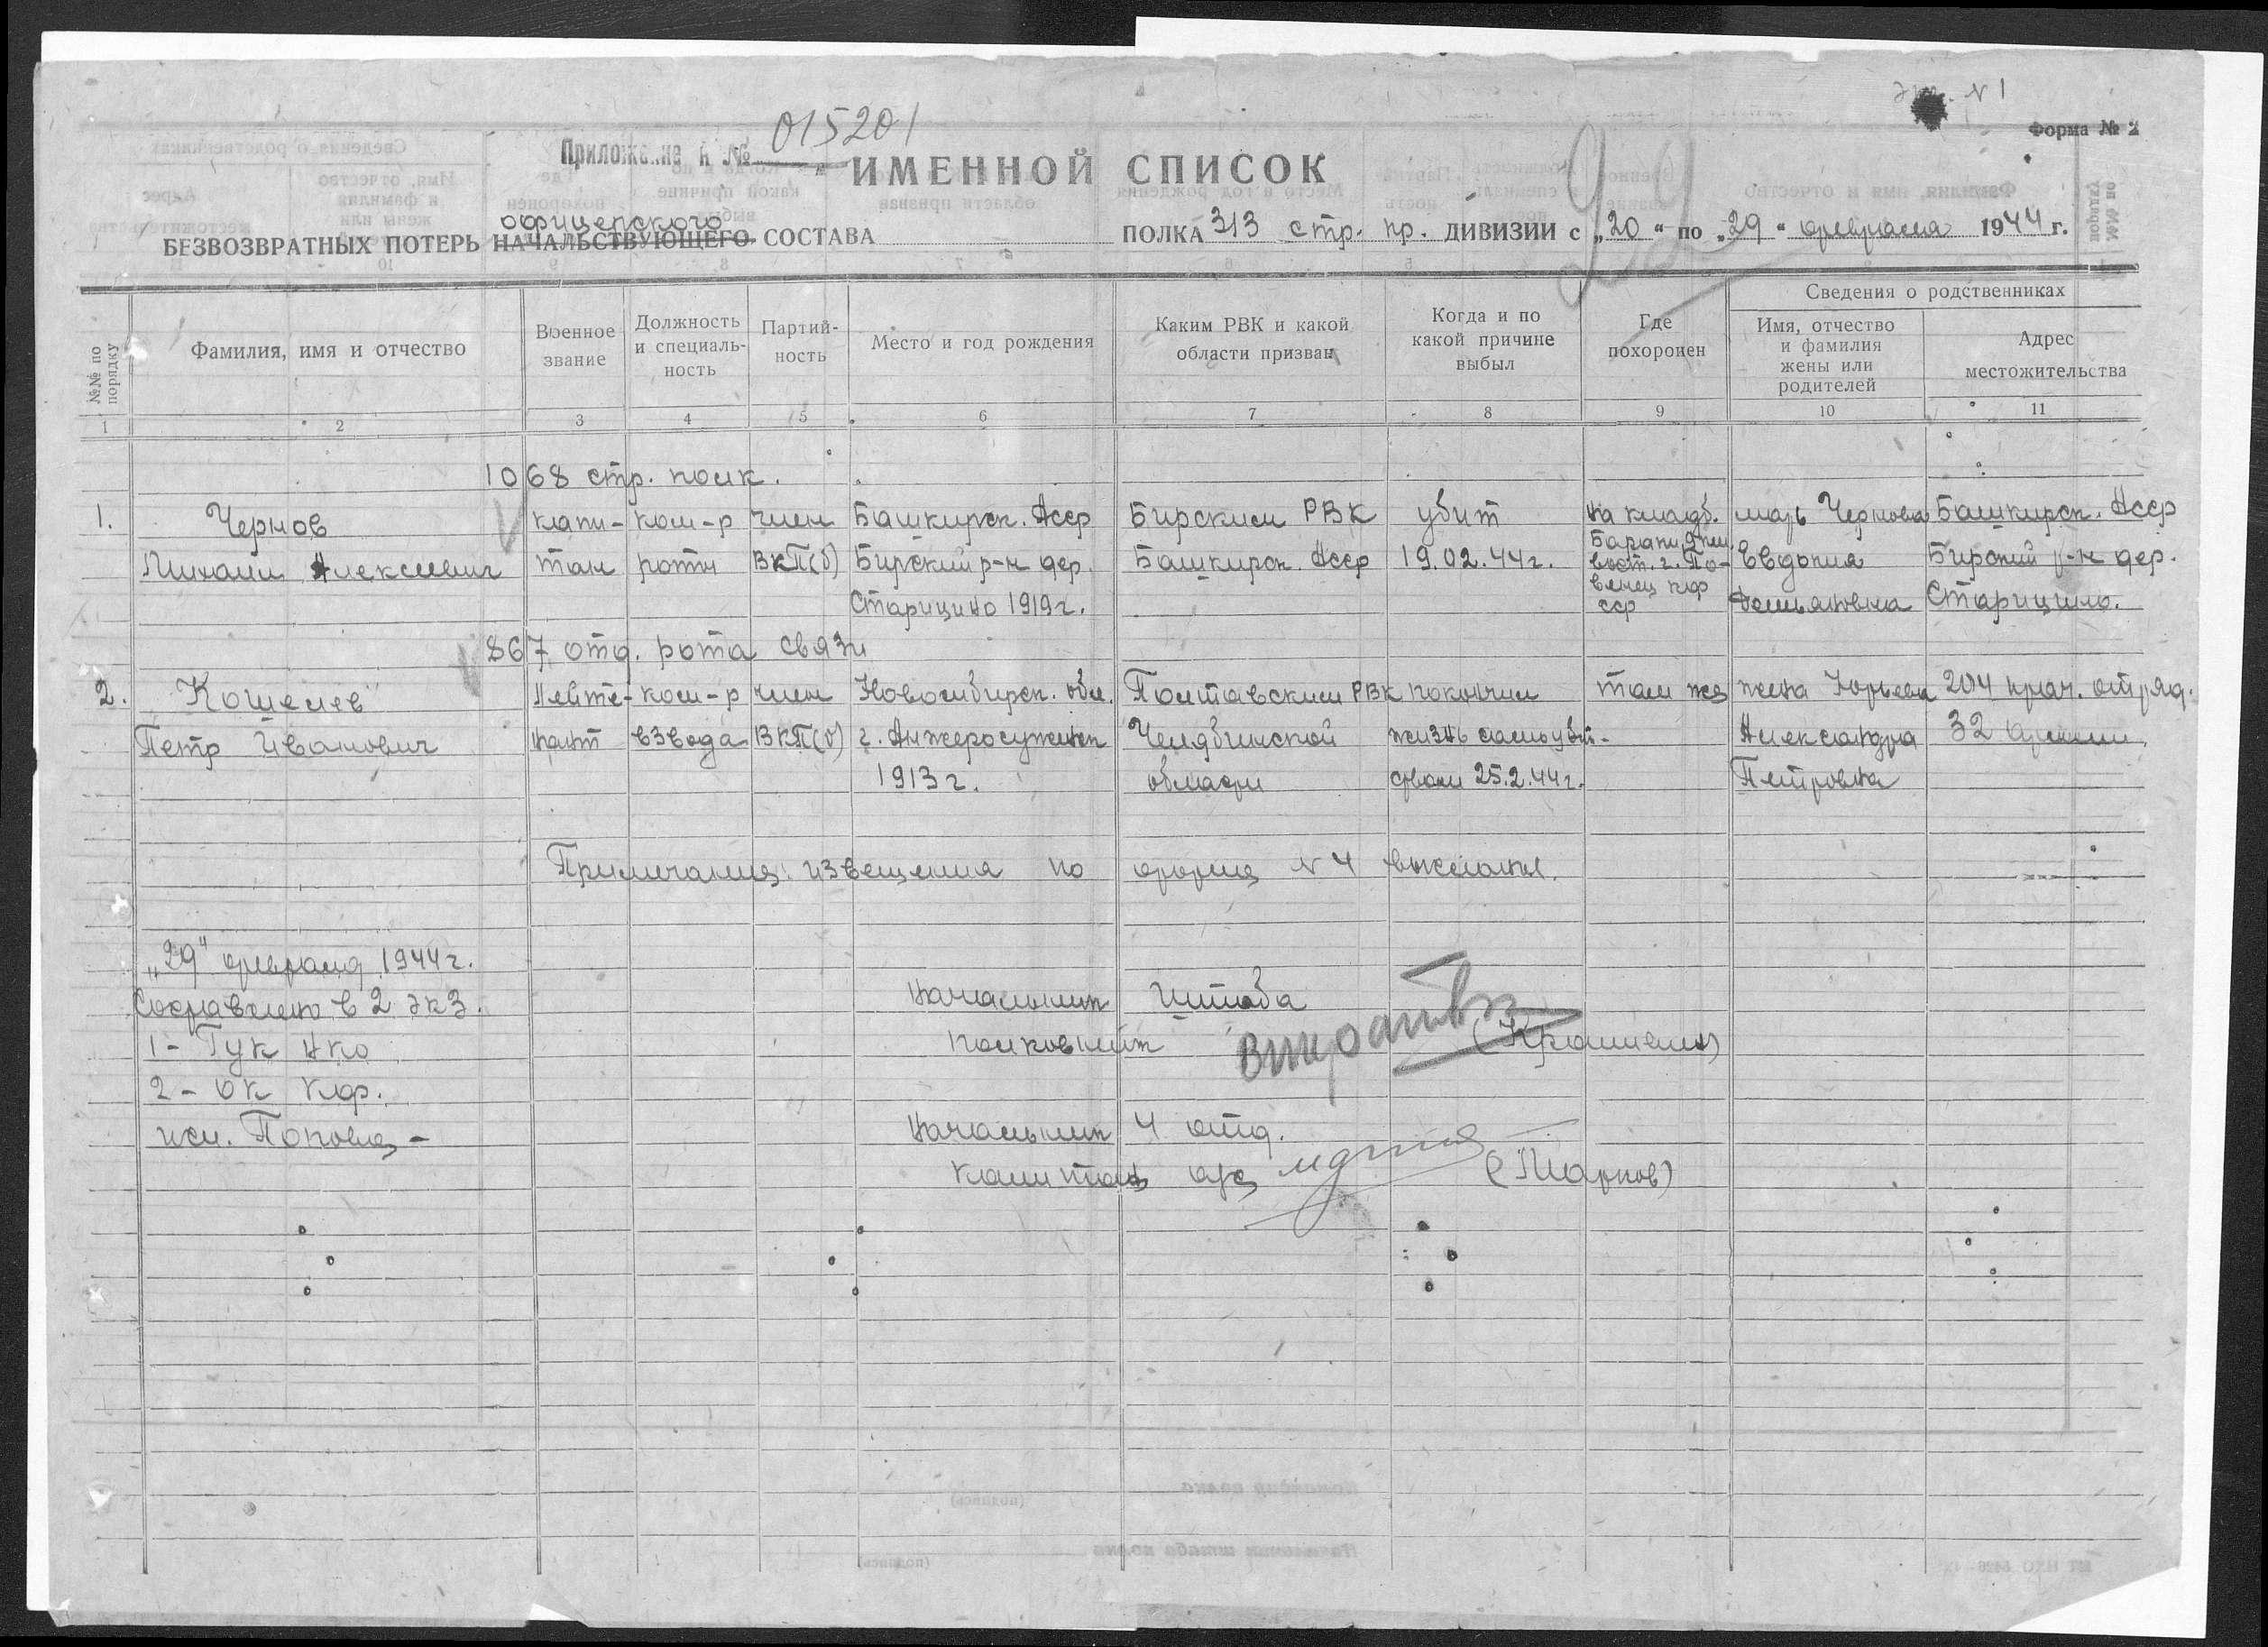 экз. № 1
Форма № 2
Приложение к № 015201
ИМЕННОЙ СПИСОК
офицерского
БЕЗВОЗВРАТНЫХ ПОТЕРЬ НАЧАЛЬСТВУЮЩЕГО СОСТАВА ПОЛКА 313 стр. кр. ДИВИЗИИ с „20“ по „29“ февраля 1944 г.
№№ по порядку
Фамилия, имя и отчество
Военное звание
Должность и специаль-ность
Партий-ность
Место и год рождения
Каким РВК и какой области призван
Когда и по какой причине выбыл
Где похоронен
Сведения о родственниках
Имя, отчество и фамилия жены или родителей
Адрес местожительства
1 2 3 4 5 6 7 8 9 10 11
1068 стр. полк.
1. Чернов капи- ком-р член Башкирск. Асср Бирским РВК убит на кладб. мать Чернова Башкирск. Асср
Михаил Алексеевич тан роты ВКП(б) Бирский р-н дер. Башкирск. Асср 19.02.44г. вост. г. По- Евдокия Бирский р-н дер.
Старицино 1919г. венец кф сср Демьяновна Старицино.
867 отд. рота связи
2. Кошелев лейте- ком-р член Новосибирск. обл. Полтавским РВК покончил там же жена 204 отряд.
Петр Иванович нант взвода ВКП(б) г. Анжеросудженск Челябинской жизнь самоубий- Александра 32 армии.
1913г. области ством 25.2.44г. Петровна
Примечание: извещения по форме № 4 высланы.
„29“ февраля 1944г.
Составлено в 2 экз.
1- Гук нко
2- ок кф.
исп. Попова -
Начальник штаба
полковник
Начальник 4 отд.
капитан а/с (Марков)